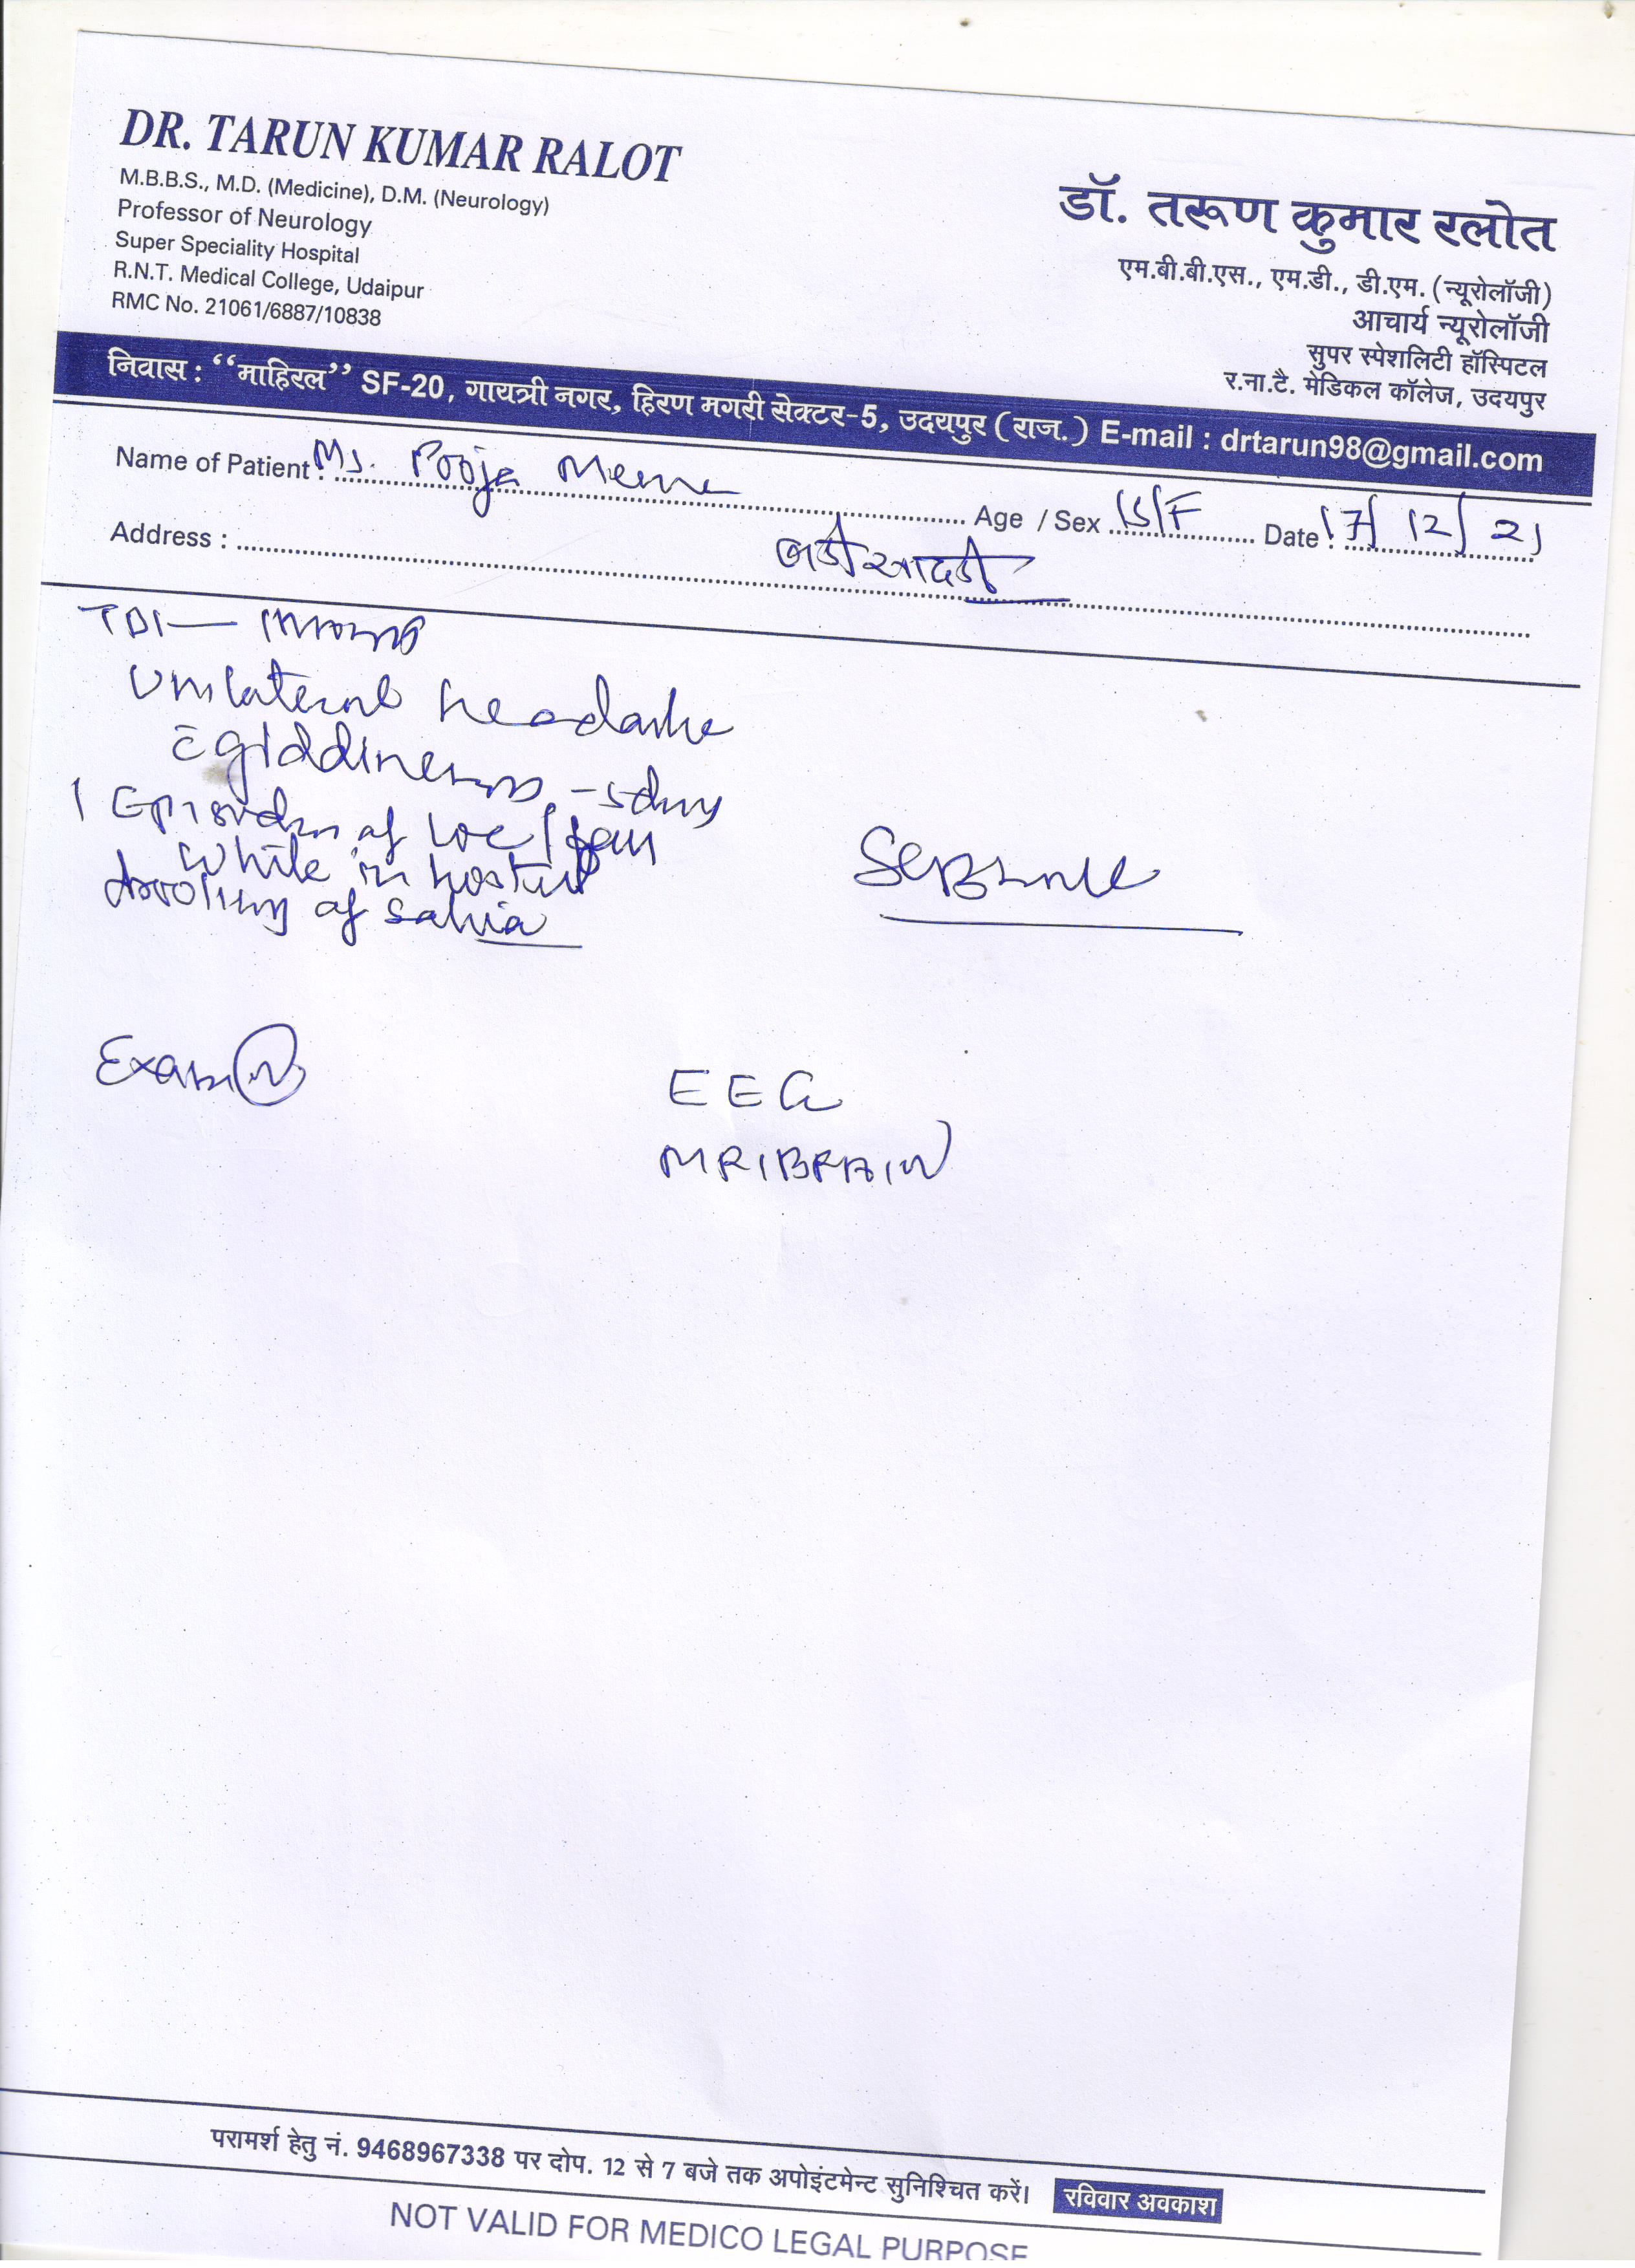 DR. TARUN KUMAR RALOT
M.B.B.S., M.D. (Medicine), D.M. (Neurology)
Professor of Neurology
Super Speciality Hospital
R.N.T. Medical College, Udaipur
RMC No. 21061/6887/10838
डॉ. तरूण कुमार रलोत
एम.बी.बी.एस., एम.डी., डी.एम. (न्यूरोलॉजी)
आचार्य न्यूरोलॉजी
सुपर स्पेशलिटी हॉस्पिटल
र.ना.टै. मेडिकल कॉलेज, उदयपुर
निवास : “माहिरल” SF-20, गायत्री नगर, हिरण मगरी सेक्टर-5, उदयपुर (राज.) E-mail : drtarun98@gmail.com
Name of Patient : Ms. Pooja Age / Sex 15/F Date : 17/12/21
Address : बडी सादडी
TDI —
Unilateral headache
c̄ giddiness
1 Episodes of LOC /
while in hostel
drooling of saliva
Exam (N)
EEG
MRI BRAIN
परामर्श हेतु नं. 9468967338 पर दोप. 12 से 7 बजे तक अपोइंटमेन्ट सुनिश्चित करें। रविवार अवकाश
NOT VALID FOR MEDICO LEGAL PURPOSE